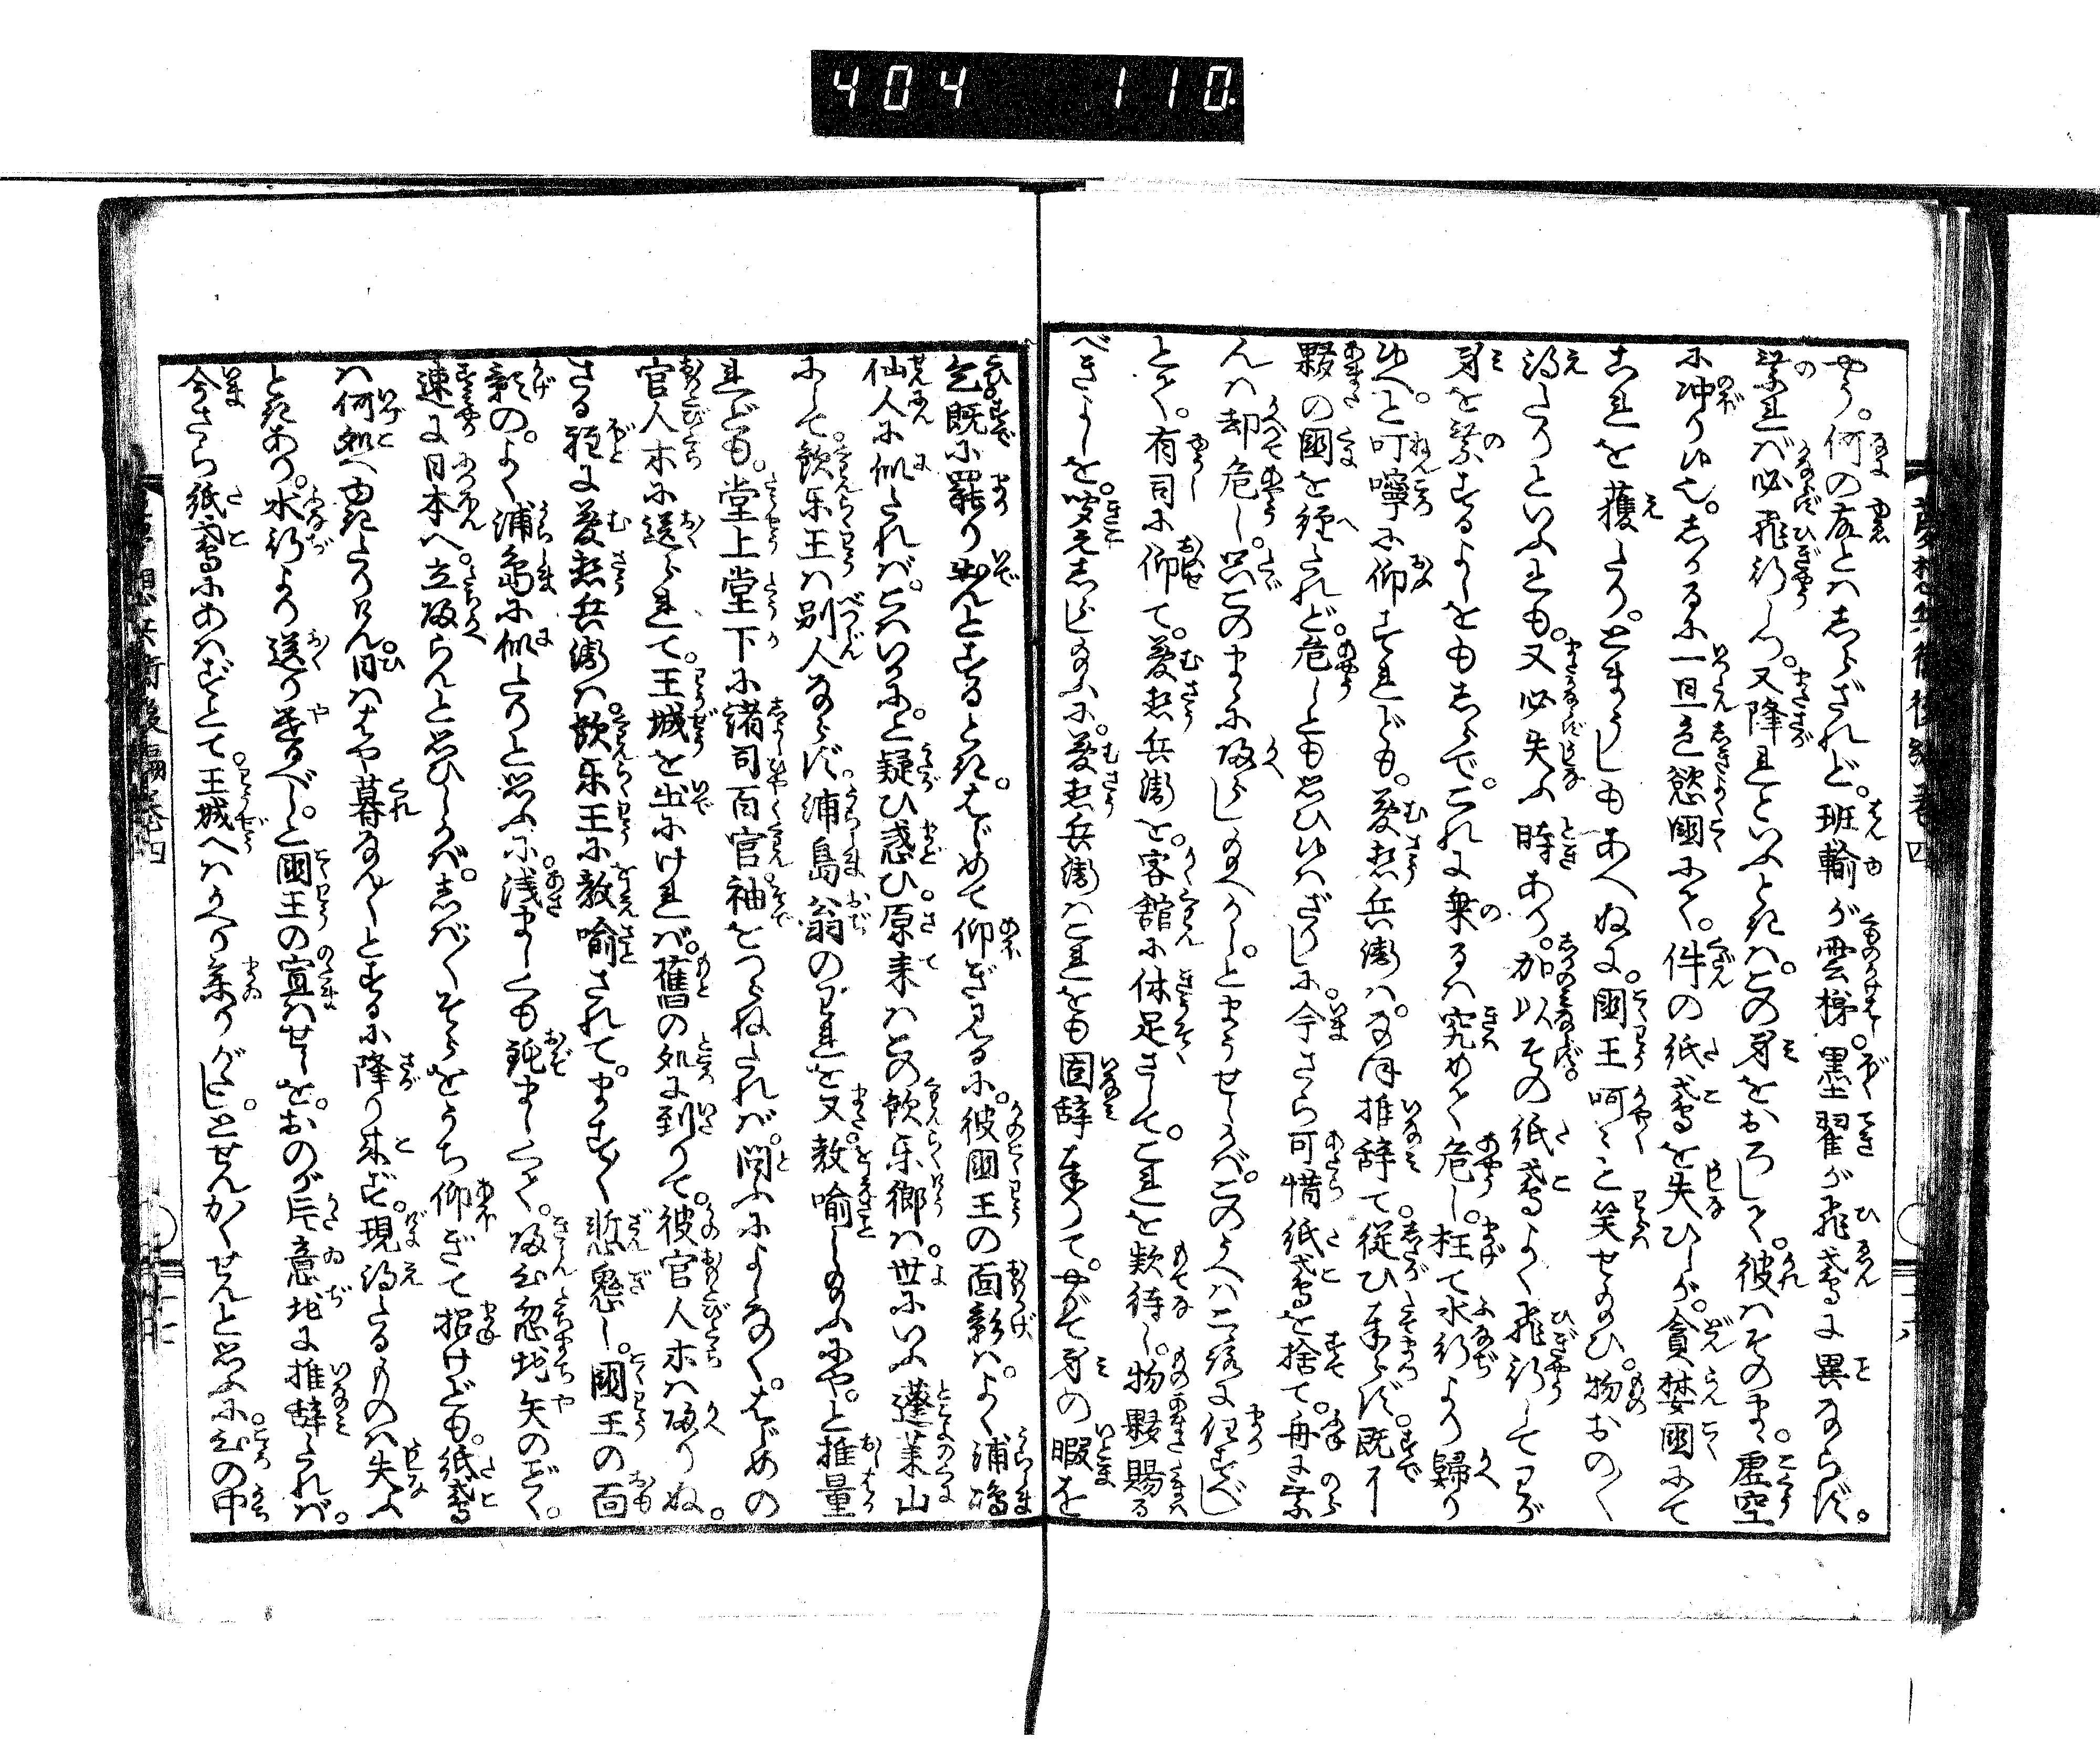 404 110
やう。何の故とはしらざれど。班輸が雲梯。墨翟が飛鳶に異ならず。
乗れば必飛行しつ。又降れといふときは。この身をおろして。彼はそのまゝ。虚空
に冲り候也。しかるに一旦色慾國にて。件の紙鳶を失ひしが。貪婪國にて
これを獲たり。とまうしもあへぬに。國王呵々と笑せ給ひ。物おの〳〵
得たりといふとも。又必失ふ時あり。加以その紙鳶よく飛行してわが
身を乗するよしをもしらで。これに乗るは究めて危し。枉て水行より歸り
候へと叮嚀に仰すれども。夢想兵衛は。なほ推辞て従ひ奉らず。既に
夥の國を經たれど。危しとも思ひ候はざりしに。今さら可惜紙鳶を捨て。舟に乗
んは却危し。只このまゝに帰らし給へかし。とまうせしかば。このうへは二郎に任すべし
とて。有司に仰て。夢想兵衛を。客館に休足させて。これを欵待し。物夥賜る
べきよしを。聞えしらし給ふに。夢想兵衛はこれをも固辞奉りて。やがて身の暇を
乞既に罷り出んとするとき。はじめて仰ぎ見るに。彼國王の面影は。よく浦嶋
仙人に似たれば。こはいかに。と疑ひ惑ひ。原来はこの飲乐郷は。世にいふ蓬莱山
にして飲乐王は別人ならず。浦島翁のわれを又教喻し給ふにや。と推量
れども。堂上堂下に諸司百官。袖をつらねたれば。問ふによしなく。はじめの
官人ホに送られて。王城を出にければ。舊の処に到りて。彼官人ホは帰りぬ。
さる程に夢想兵衛は。飲乐王に教喻されて。ますく慙愧し。國王の面
影の。よく浦島に似たりと思ふに。浅ましくも鈍ましくて。帰心忽地矢のごとく。
速に日本へ。立帰らんと思ひしかば。しば〳〵そらをうち仰ぎて招けども。紙鳶
は何処へゆきたりけん。日ははや暮なん〳〵とするに降り来ず。現得たるものは失ふ
ときあり。水行より送り遣るべし。と國王の宣はせしを。おのが片意地に推辞たれば。
今さら紙鳶にあはずとて。王城へはかへり参りがたし。とせんかくせんと思ふに。心の中